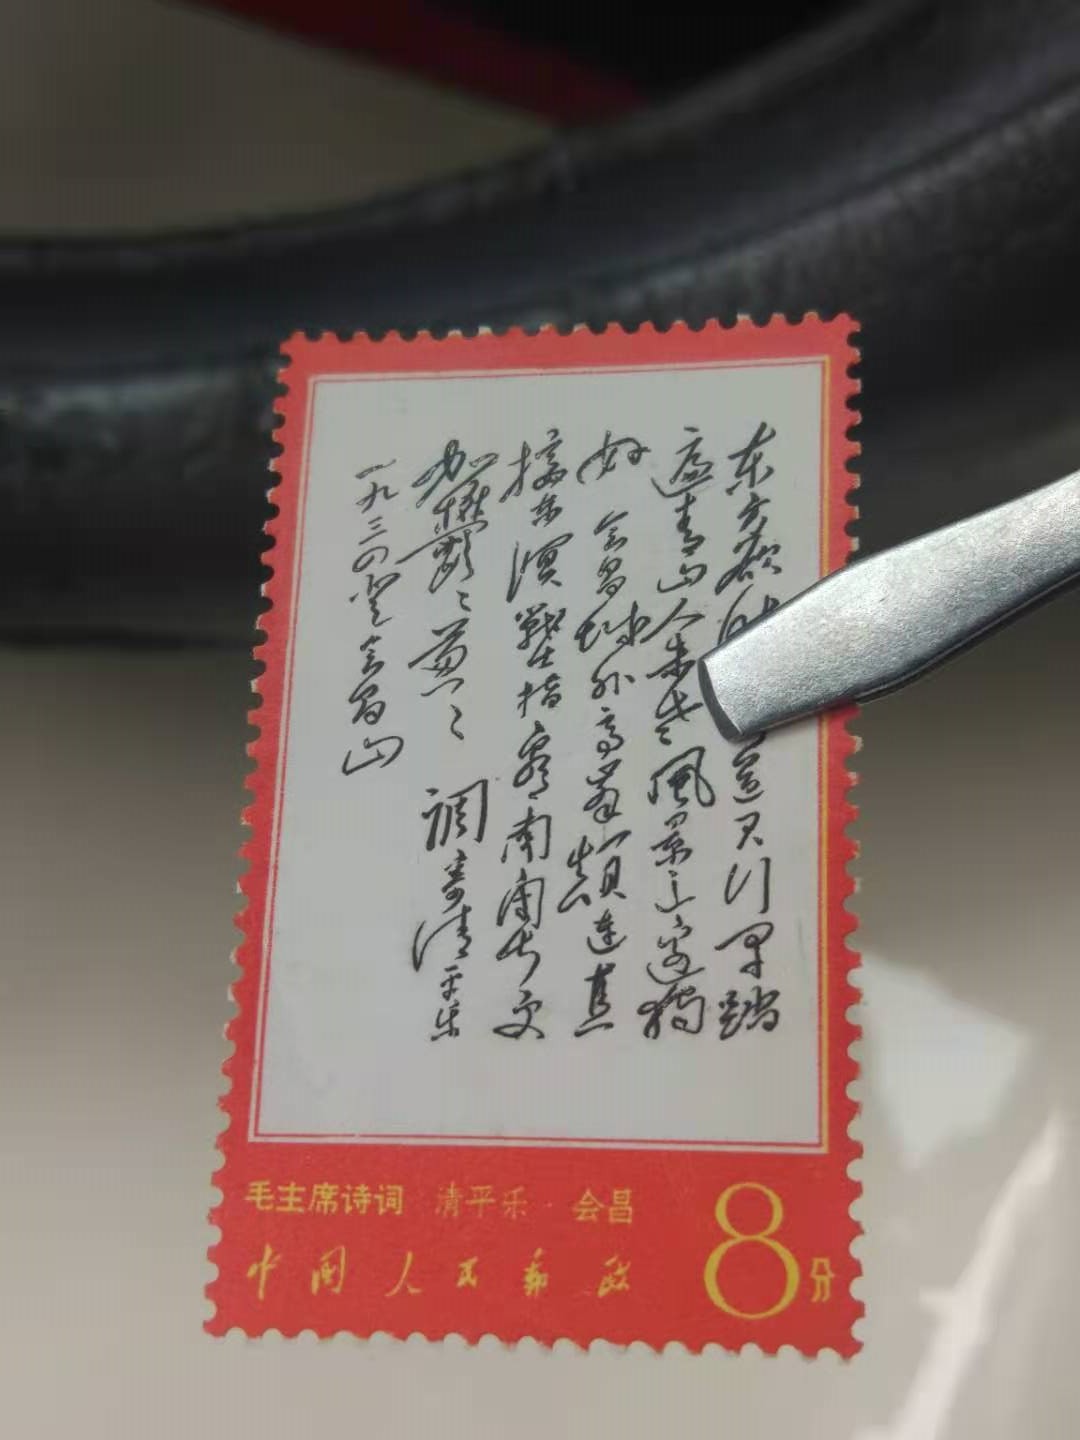 东方欲
道君行早踏
遍青山人未老風景这边独
好 会昌城外高峯顛连直
接东溟戰士指看南粤更
加鬱〻葱〻 調寄清平乐
一九三四登会昌山
毛主席诗词 清平乐·会昌
中国人民邮政
8分